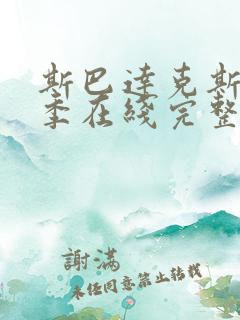 斯巴达克斯
季在线完整
謝滿
未经同意禁止转载